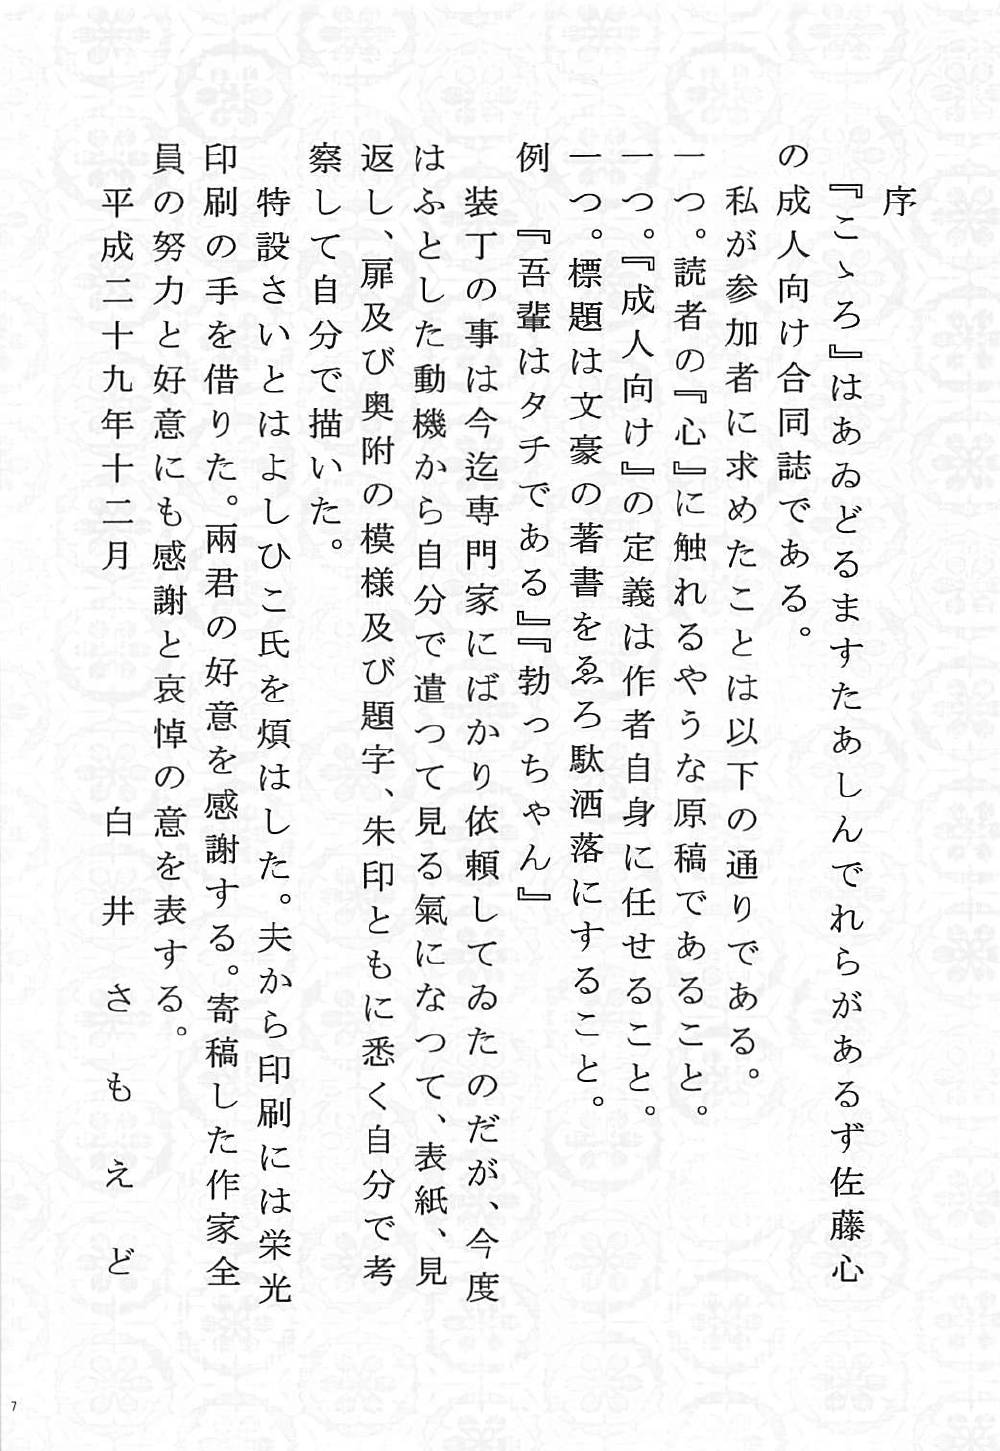 序
『こゝろ』はあゐどるますたあしんでれらがあるず佐藤心
の成人向け合同誌である。
私が参加者に求めたことは以下の通りである。
一つ。読者の『心』に触れるやうな原稿であること。
一つ。『成人向け』の定義は作者自身に任せること。
一つ。標題は文豪の著書をゑろ駄洒落にすること。
例　『吾輩はタチである』『勃っちゃん』
装丁の事は今迄専門家にばかり依頼してゐたのだが、今度
はふとした動機から自分で遣つて見る氣になつて、表紙、見
返し、扉及び奥附の模様及び題字、朱印ともに悉く自分で考
察して自分で描いた。
特設さいとはよしひこ氏を煩はした。夫から印刷には栄光
印刷の手を借りた。兩君の好意を感謝する。寄稿した作家全
員の努力と好意にも感謝と哀悼の意を表する。
平成二十九年十二月　　　　　白井さもえど
7